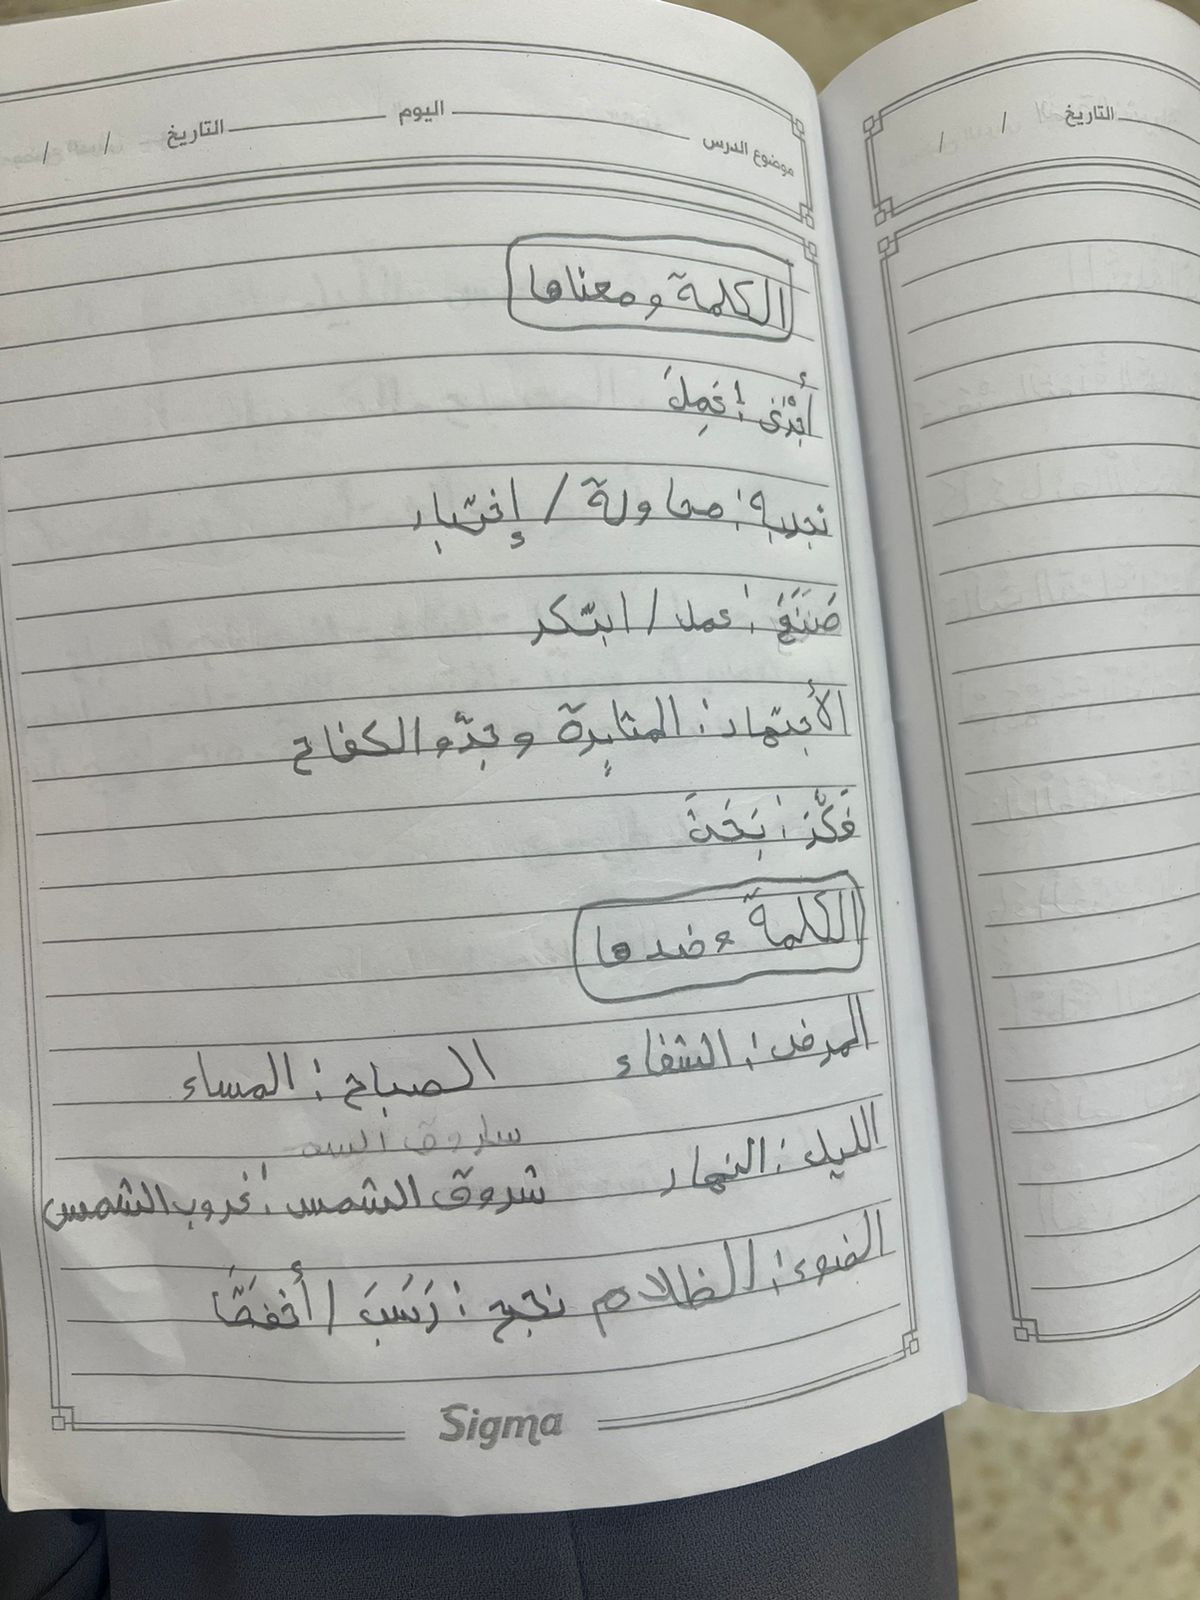 موضوع الدرس اليوم التاريخ / /
التاريخ / /
الكلمة ومعناها
أجرى : عمل
تجربة : محاولة / إختبار
صَنَعَ : عمل / ابتكر
الأجتهاد : المثابرة و الكفاح
فَكَّرَ : بَحَثَ
الكلمة و ضدها
المرض : الشفاء الصباح : المساء
الليل : النهار شروق الشمس : غروب الشمس
الضوء : الظلام نجح : رَسَبَ / أخفق
Sigma